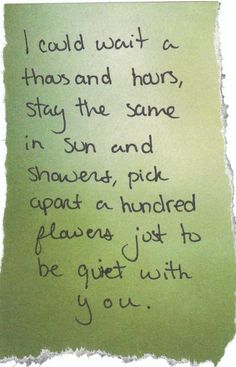 I could wait a
thousand hours,
stay the same
in sun and
showers, pick
apart a hundred
flowers just to
be quiet with
you.